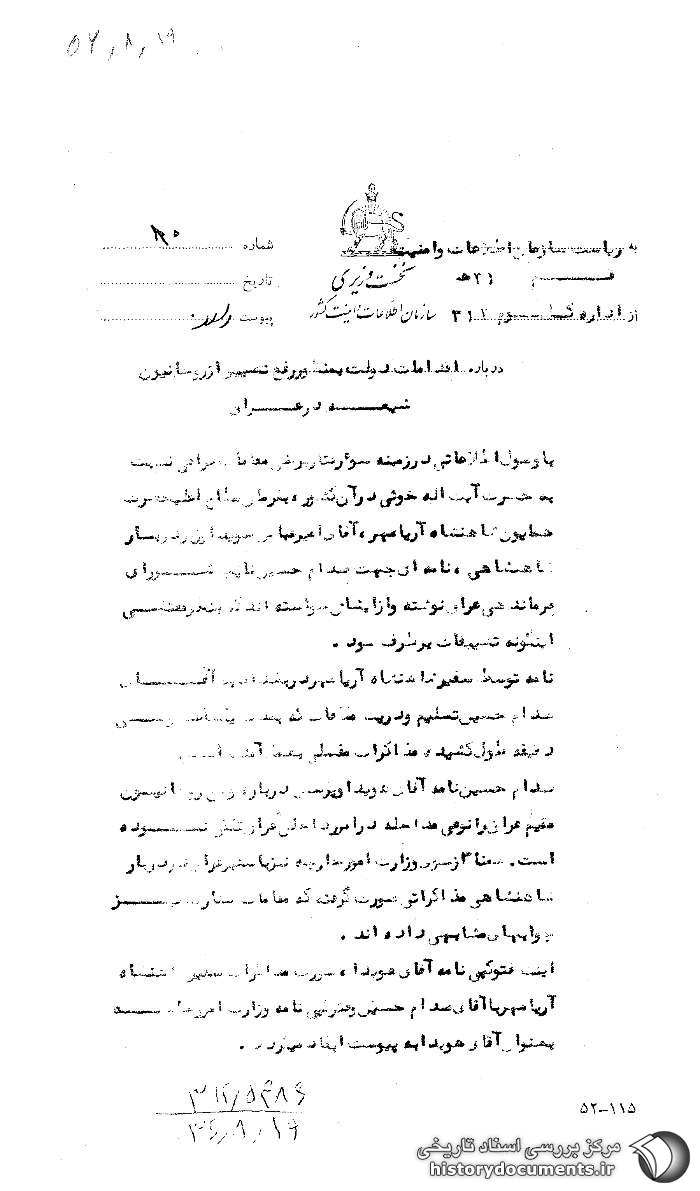 ۵۷٫۸٫۱۹
به ریاست سازمان اطلاعات و امنیت
شماره
۲۱ هـ
نخست وزیری
تاریخ
از اداره کل سوم ۳۱۲
سازمان اطلاعات و امنیت کشور
پیوست دارد.
درباره اقدامات دولت بمنظور رفع تضییق از روحانیون
شیعه در عراق
با وصول اطلاعاتی در زمینه سوء رفتار برخی مقامات عراقی نسبت
به حضرت آیت اله خوئی در آن کشور، بفرمان مطاع اعلیحضرت
همایون شاهنشاه آریامهر، آقای امیرعباس هویدا وزیر دربار
شاهنشاهی، نامه ای جهت صدام حسین نایب شورای
فرماندهی عراق نوشته و از ایشان خواسته اند که بنحو مقتضی
اینگونه تضییقات برطرف شود.
نامه توسط سفیر شاهنشاه آریامهر در بغداد به آقای
صدام حسین تسلیم و در یک ملاقات که بمدت یکساعت و سی
دقیقه طول کشیده، مذاکرات مفصلی بعمل آمده است.
صدام حسین نامه آقای هویدا و پرسش درباره وضع روحانیون
مقیم عراق را نوعی مداخله در امور داخلی عراق تلقی نموده
است. ضمنا از سوی وزارت امور خارجه نیز با سفیر عراق در دربار
شاهنشاهی مذاکراتی صورت گرفته که مقامات سفارت نیز
جوابهای مشابهی داده اند.
اینک فتوکپی نامه آقای هویدا، صورت مذاکرات سفیر شاهنشاه
آریامهر با آقای صدام حسین و فتوکپی نامه وزارت امور خارجه
بعنوان آقای هویدا به پیوست ایفاد میگردد.
۳۱۲/۵۴۸۶
۳۶٫۸٫۱۹
۵۲-۱۱۵
مرکز بررسی اسناد تاریخی
historydocuments.ir